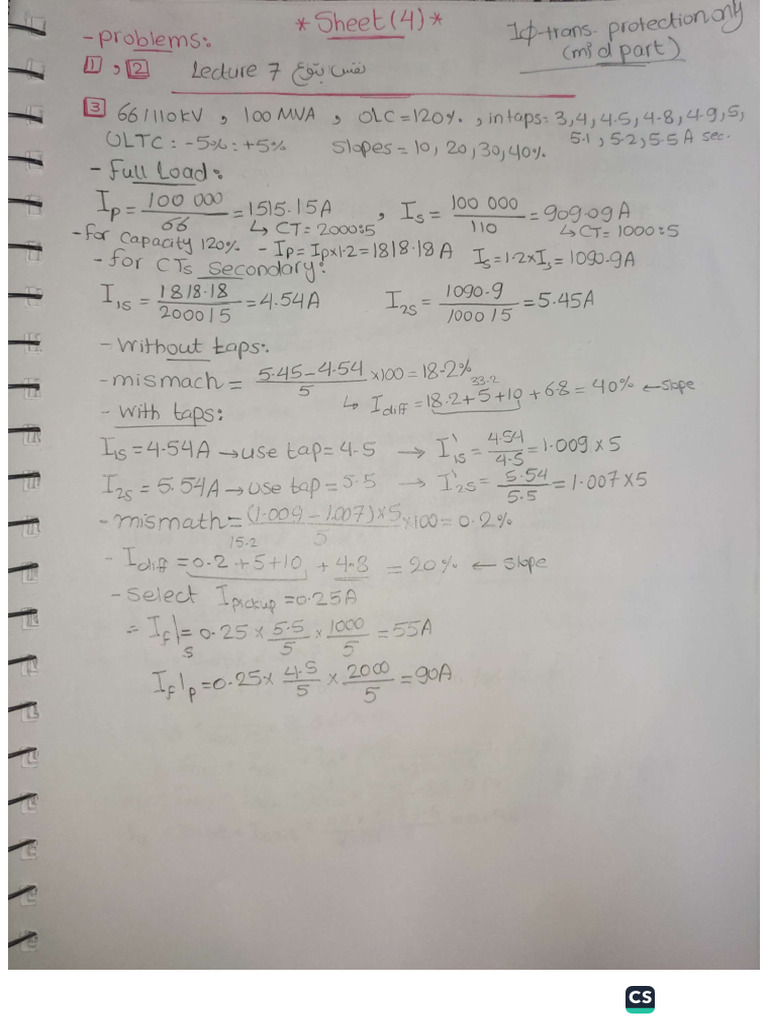 *Sheet(4)*
1ϕ-trans. protection only
(mid part)
-problems:
1, 2 Lecture 7 نفس بتوع
3 66/110kV, 100 MVA, OLC=120%, intaps: 3,4,4.5,4.8,4.9,5,
5.1, 5.2, 5.5 A sec.
OLTC: -5%: +5% Slopes = 10, 20, 30, 40%.
- Full Load:
Ip = 100 000 / 66 = 1515.15A , Is = 100 000 / 110 = 909.09A
↳ CT = 2000:5 ↳ CT = 1000:5
-for capacity 120% - Ip = Ip×1.2 = 1818.18A Is = 1.2×Is = 1090.9A
- for CTs secondary:
I1s = 1818.18 / 2000/5 = 4.54A I2s = 1090.9 / 1000/5 = 5.45A
- without taps:
-mismach = 5.45-4.54 / 5 ×100 = 18.2%
33.2
↳ Idiff = 18.2+5+10 + 6.8 = 40% ← slope
- with taps:
I1s = 4.54A → use tap = 4.5 → I'1s = 4.54 / 4.5 = 1.009 × 5
I2s = 5.54A → use tap = 5.5 → I'2s = 5.54 / 5.5 = 1.007×5
- mismath = (1.009 - 1.007)×5 / 5 ×100 = 0.2%
15.2
- Idiff = 0.2+5+10 + 4.8 = 20% ← slope
- select Ipickup = 0.25A
∴ If|s = 0.25 × 5.5 / 5 × 1000 / 5 = 55A
If|p = 0.25× 4.5 / 5 × 2000 / 5 = 90A
CS